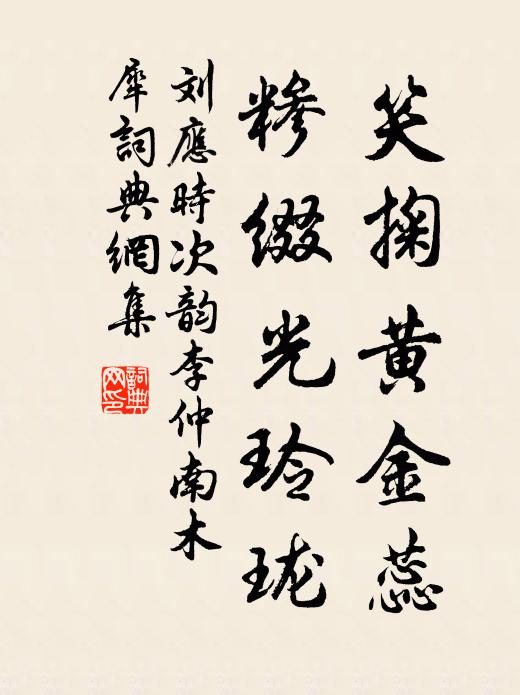 笑掬黄金蕊
糁缀光玲珑
刘應時次韵李仲南木
犀詞典網集
詞典
网印